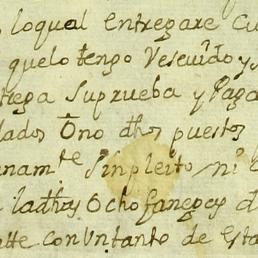 loqual entregare Cu
quelo tengo Resevido y
trega Suprueba y Paga
lados Ono dhos puestos
nam.te Sinpleito ni
ladhas Ocho fanegas d
con Untanto de Esta